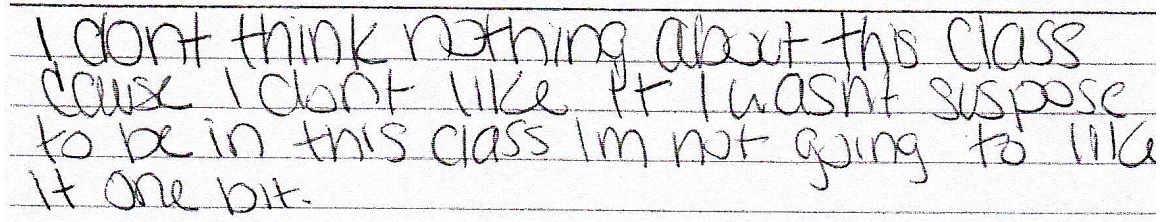 I dont think nothing about this class
cause I dont like it I wasnt suspose
to be in this class Im not going to like
it one bit.